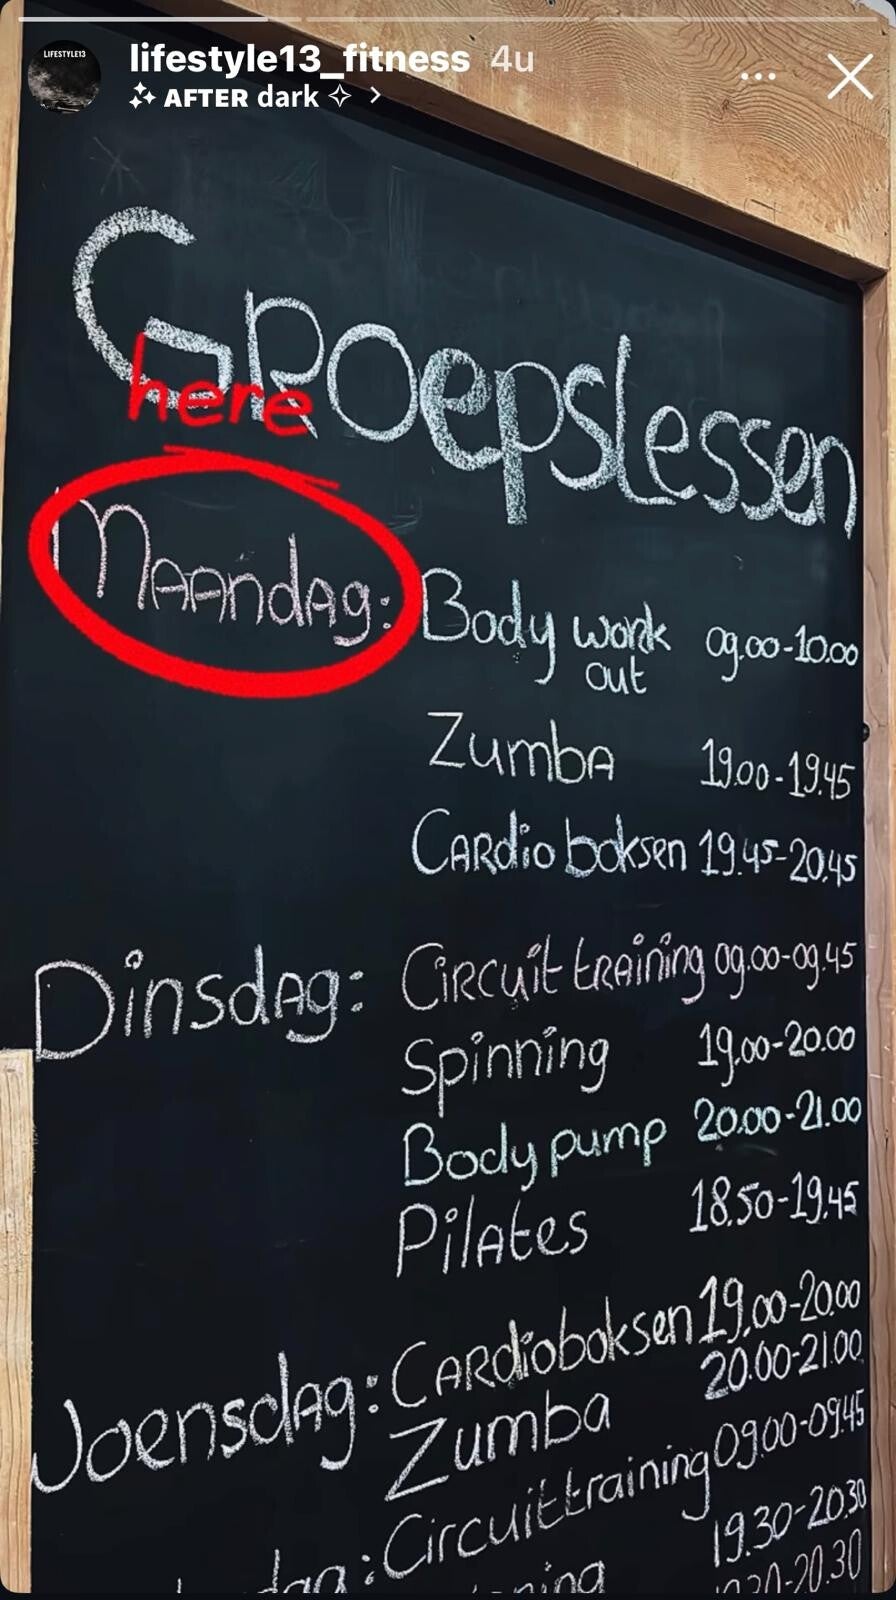 LIFESTYLE13
lifestyle13_fitness 4u
AFTER dark
Groepslessen
here
Maandag: Body work out 09.00-10.00
Zumba 19.00-19.45
Cardio boksen 19.45-20.45
Dinsdag: Circuit training 09.00-09.45
Spinning 19.00-20.00
Body pump 20.00-21.00
Pilates 18.50-19.45
Woensdag: Cardioboksen 19.00-20.00
Zumba 20.00-21.00
Circuittraining 09.00-09.45
19.30-20.30